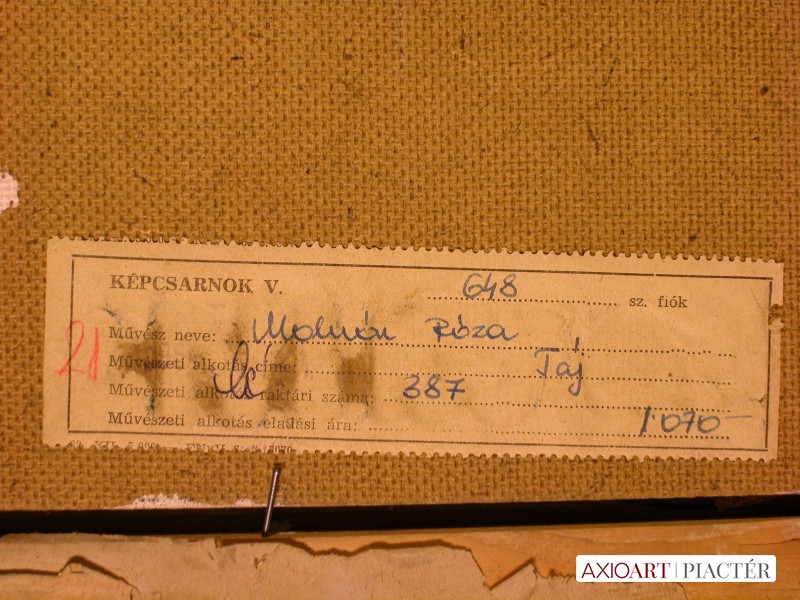 KÉPCSARNOK V. 648 sz. fiók
21
Művész neve: Molnár Róza
Művészeti alkotás címe: Taj
Művészeti alkotás raktári száma: 387
Művészeti alkotás eladási ára: 1070-
AXIOART | PIACTÉR